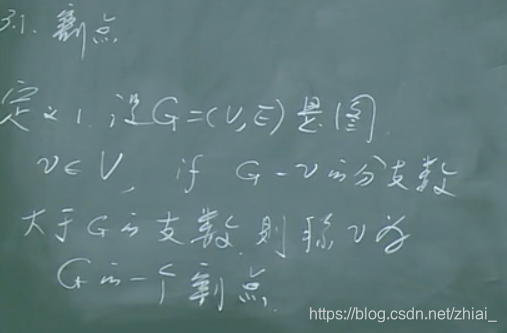 3.1. 割点
定义1. 设G=(V,E)是图.
v∈V, if G-v的分支数
大于G的支数,则称v为
G的一个割点.
https://blog.csdn.net/zhiai_